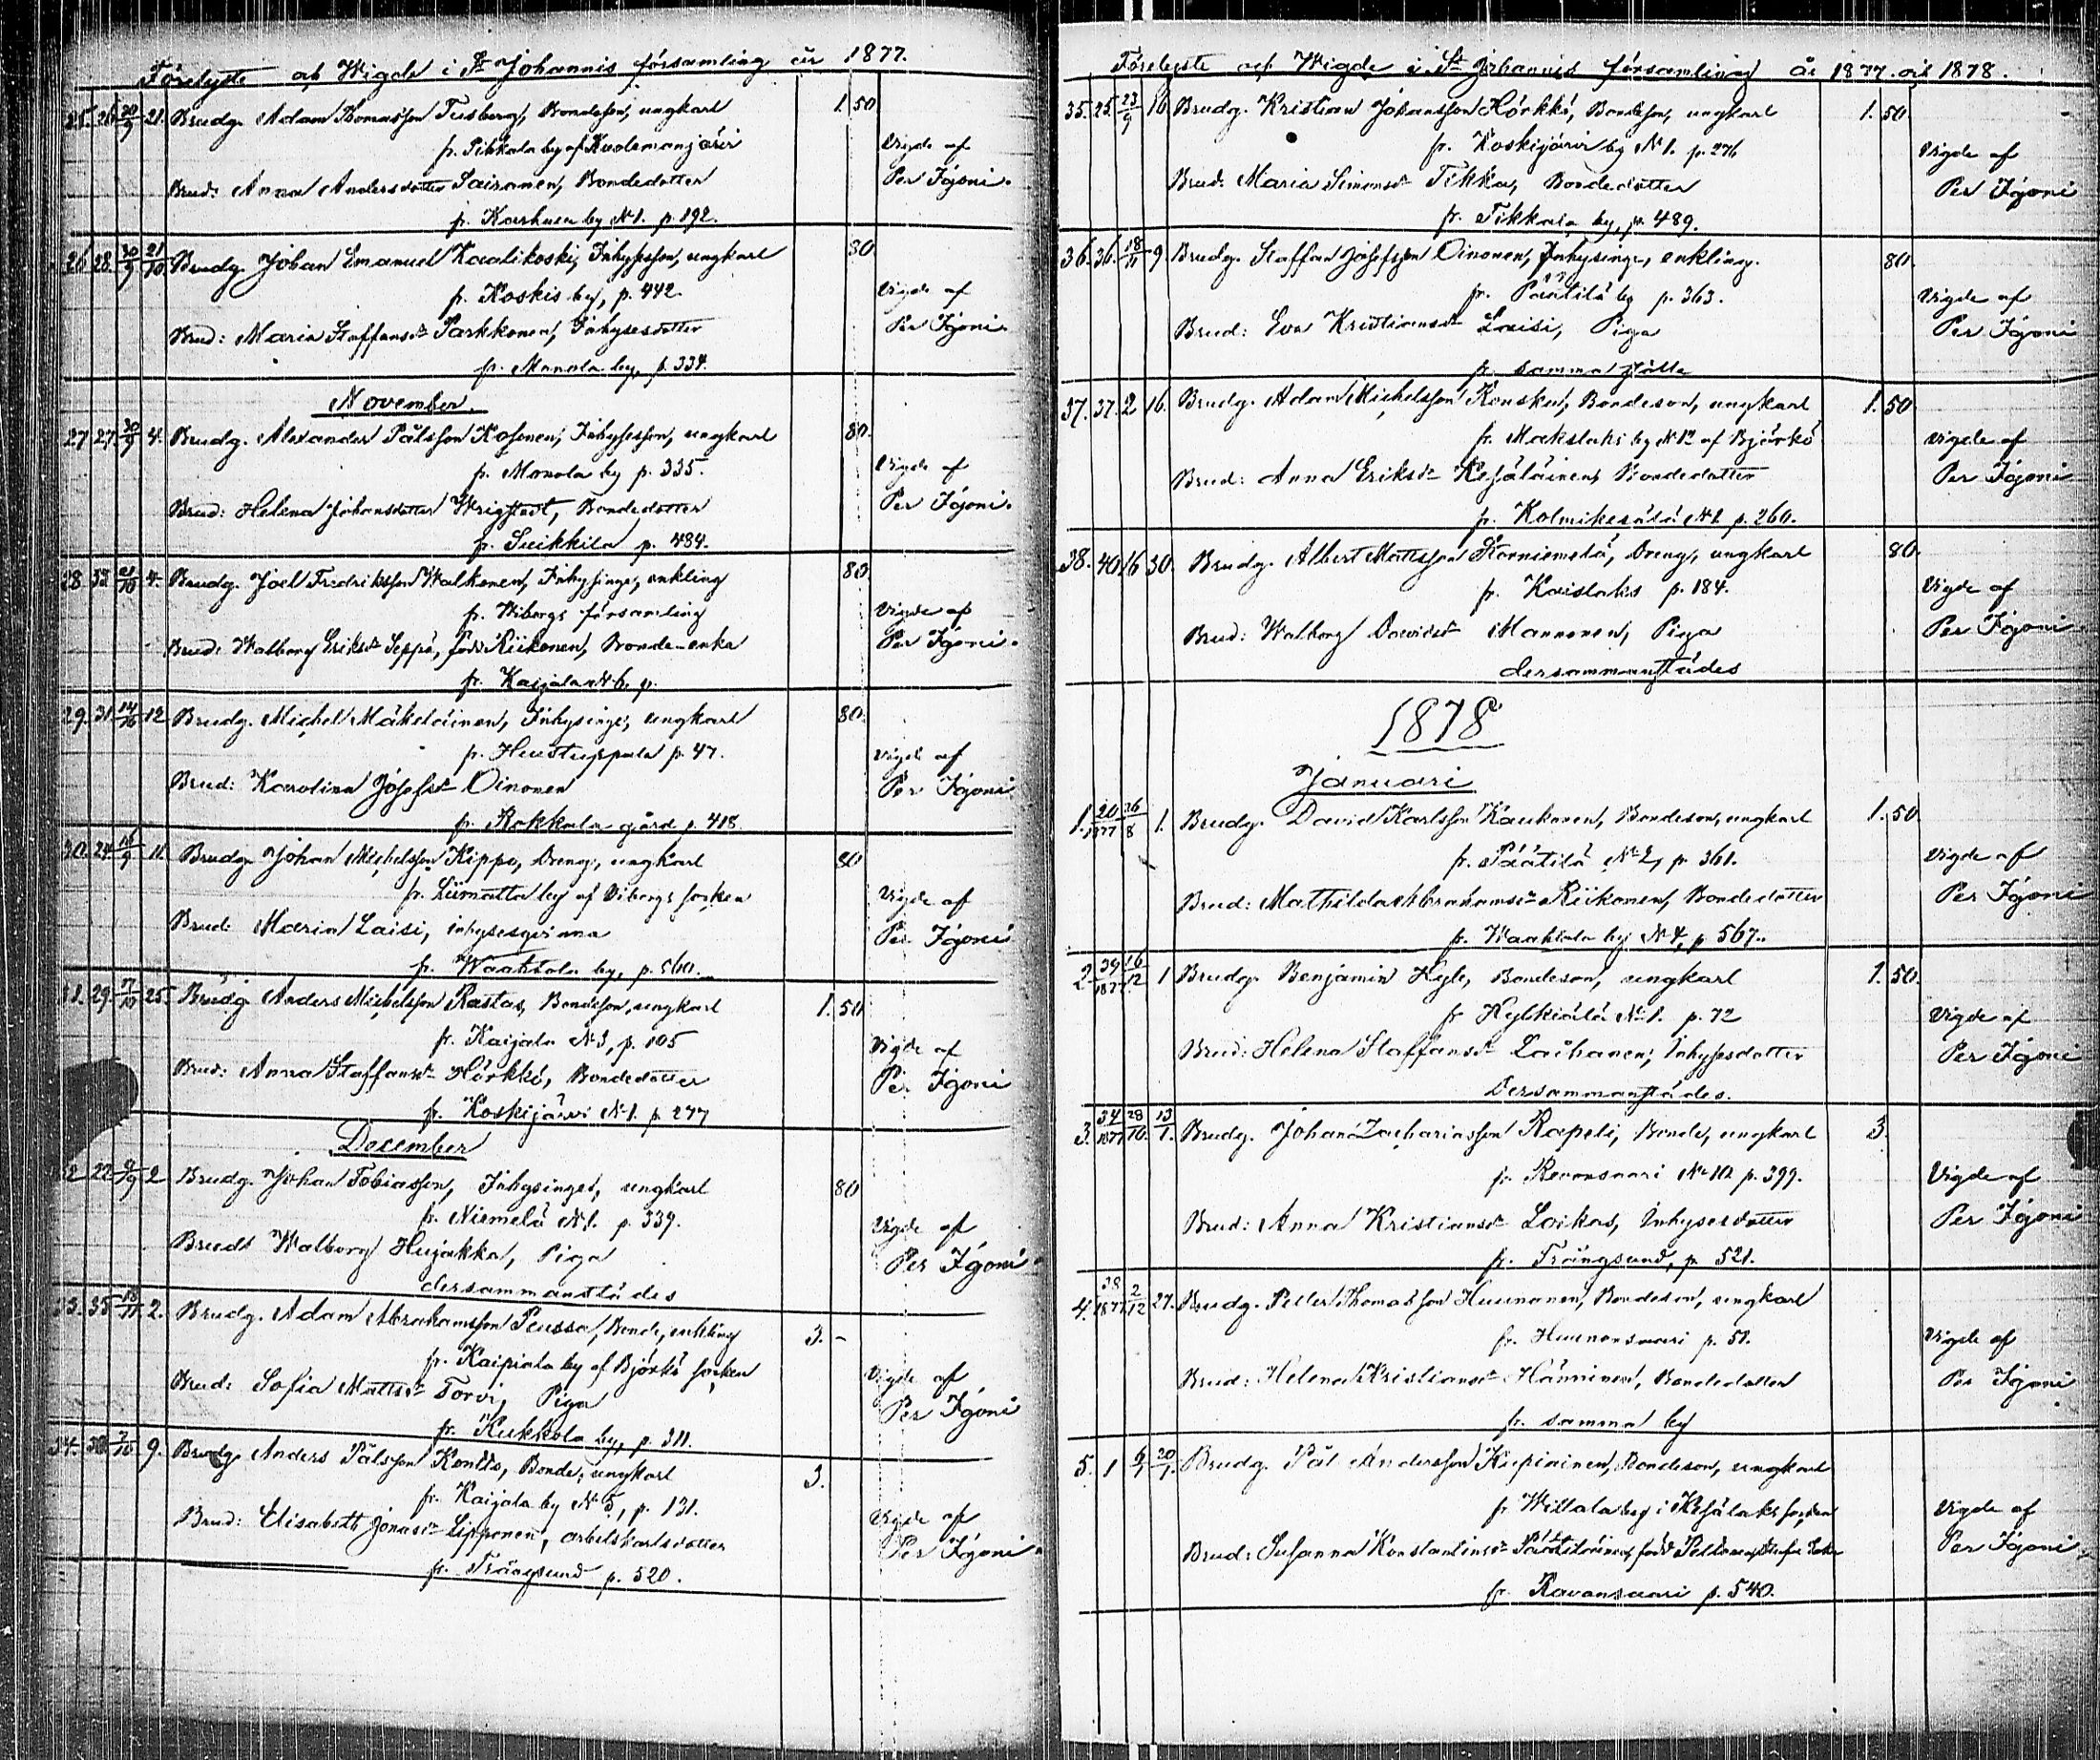 Förelyste och Wigde i St Johannis församling år 1877.
25. 26. 30/9 21. Brudg. Adam Thomasson Tusberg, Bondeson, ungkarl 1. 50
fr. Pihkala by af Kuolemanjärvi Vigde af
Brud: Anna Andersdotter Sairanen, Bondedotter Per Igoni.
fr. Karhula by N 1. p. 192.
26 28. 30/9 21/10 Brudg. Johan Emanuel Kaalikoski, Inhysesson, ungkarl 80
fr. Koskis by, p. 442. Vigde af
Brud: Maria Staffansdr Parkkonen, Inhysesdotter Per Igoni.
fr. Manola by, p. 334.
November.
27 27. 30/9 4. Brudg. Alexander Pålsson Kosonen, Inhysesson, ungkarl 80.
fr. Monola by p. 335. Vigde af
Brud: Helena Johansdotter, Bondedotter Per Igoni.
fr. Suikkila p. 484.
28 33 21/10 4. Brudg. Joel Fredriksson Walkonen, Inhysinge, enkling 80.
fr. Wiborgs församling Vigde af
Brud: Walborg Eriksdr Seppä, född Riikonen, Bonde-enka Per Igoni.
fr. Kaijala N 6. p.
29. 31. 14/10 12 Brudg. Michel Mäkeläinen, Inhysinge, ungkarl 80.
fr. Huustuppala p. 47. Vigde af
Brud: Karolina Josefsdr Oinonen Per Igoni
fr. Rokkala gård p. 418.
30. 24. 16/9 11. Brudg. Johan Michelsson Kippo, Dreng, ungkarl 80
fr. Liimatta by af Viborgs socken Vigde af
Brud: Maria Laisi, inhysesqvinna Per Igoni
fr. Waahtola by, p. 560.
31. 29. 7/10 25. Brudg. Anders Michelsson Rastas, Bondeson, ungkarl 1. 50
fr. Kaijala N 3, p. 105 Vigde af
Brud: Anna Staffansdr Hörkkö, Bondedotter Per Igoni
fr. Koskijärvi N 1. p. 277
December
32 22. 9/9 2 Brudg. Johan Tobiasson, Inhysinge, ungkarl 80
fr. Niemelä N 1. p. 339. Vigde af
Brud: Walborg Hujakka, Piga Per Igoni
dersammanstädes
33. 35. 18/11 2. Brudg. Adam Abrahamsson Peussa, Bonde, enkling 3. -
fr. Kaipiala by af Björkö socken Vigde af
Brud: Sofia Mattsdr Torvi, Piga Per Igoni
fr. Kukkola by, p. 311.
34. 30. 7/10 9. Brudg. Anders Pålsson Kontto, Bonde, ungkarl 3.
fr. Kaijala by N 5, p. 131. Vigde af
Brud: Elisabeth Jonasdr Lipponen, arbetskarlsdotter Per Igoni
fr. Trångsund p. 520.
Förelyste och Wigde i St Johannis församling år 1877 och 1878.
35. 25. 23/9 16. Brudg. Kristian Johansson Hörkkö, Bondeson, ungkarl 1. 50
fr. Koskijärvi by N 1. p. 276 Vigde af
Brud: Maria Simonsdr Tikka, Bondedotter Per Igoni
fr. Tikkala by, p. 489.
36. 36. 18/11 9 Brudg. Staffan Josefsson Oinonen, Inhysinge, enkling. 80.
fr. Päätilä by p. 363. Vigde af
Brud: Eva Kristiansdr Laisi, Piga Per Igoni
fr. samma ställe
37. 37. 2 16. Brudg. Adam Michelsson Kouska, Bondeson, ungkarl 1. 50
fr. Makslaks by N 12 af Björkö Vigde af
Brud: Anna Eriksdr Kesäläinen, Bondedotter Per Igoni
fr. Kolmikesälä N 1. p. 260.
38. 40. 16 30. Brudg. Albert Mattsson Korniemelä, Dreng, ungkarl 80.
fr. Kaislaks p. 184. Vigde af
Brud: Walborg Davidsdr Mannonen, Piga Per Igoni
dersammanstädes
1878
Januari
1. 20/1877 26/8 1. Brudg. David Karlsson Kaukonen, Bondeson, ungkarl 1. 50
fr. Päätilä N 2, p. 361. Vigde af
Brud: Mathilda Abrahamsdr Riikonen, Bondedotter Per Igoni
fr. Waahtola by N 4, p. 567.
2. 39/1877 16/12 1 Brudg. Benjamin Hyle, Bondeson, ungkarl 1. 50.
fr. Kylkiälä N 1. p. 72 Vigde af
Brud: Helena Staffansdr Laihanen, Inhysesdotter Per Igoni
Dersammanstädes.
3. 34/1877 28/10 13/1. Brudg. Johan Zachariasson Rapeli, Bonde, ungkarl 3
fr. Revonsaari N 10 p. 399. Vigde af
Brud: Anna Kristiansdr Laikas, Inhysesdotter Per Igoni
fr. Trångsund, p. 521.
4. 38/1877 2/12 27. Brudg. Petter Thomasson Huunonen, Bondeson, ungkarl
fr. Huunonsaari p. 51. Vigde af
Brud: Helena Kristiansdr Hänninen, Bondedotter Per Igoni
fr. samma by
5. 1 6/1 20/1. Brudg. Pål Andersson Kupiainen, Bondeson, ungkarl
fr. Willala by i Kesälaks socken Vigde af
Brud: Susanna Konstantinsdr Päätiläinen, född Peltonen Per Igoni
fr. Ravansaari p. 540.